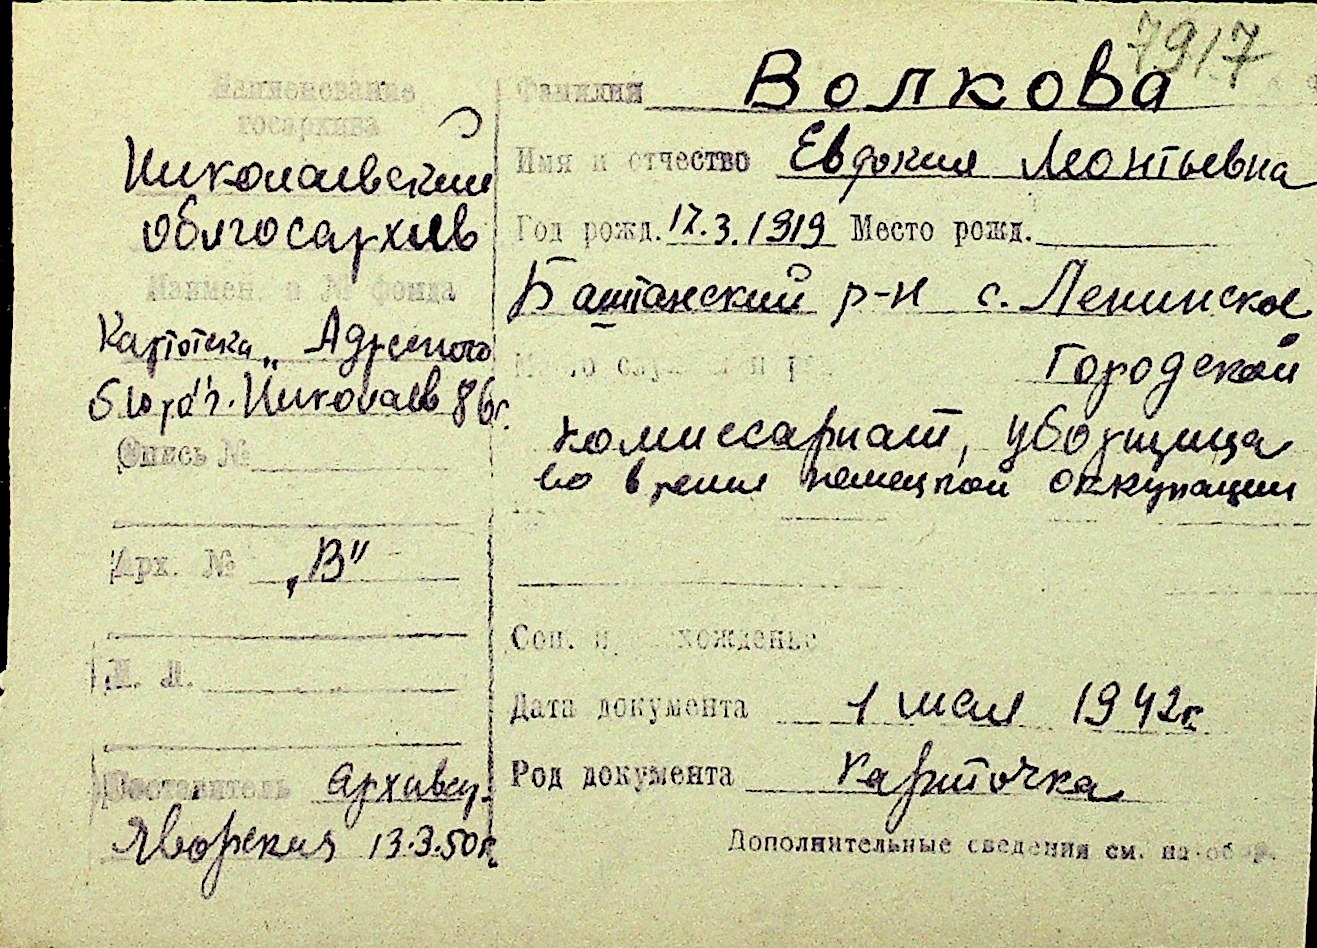 7917
Наименование
госархива
Николаевский
облгосархив
Наимен. и № фонда
Картотека „Адресного
бюро" г. Николаев 86г.
Опись №
Арх. № „В"
Л. Л.
Составитель архивар.
Яворская 13.3.50г.
Фамилия Волкова
Имя и отчество Евдокия Леонтьевна
Год рожд. 17.3.1919 Место рожд.
Баштанский р-н с. Ленинское
Городской
комиссариат, уборщица
во время немецкой оккупации
Соц. происхожденье
Дата документа 1 июля 1942г.
Род документа карточка
Дополнительные сведения см. на обор.